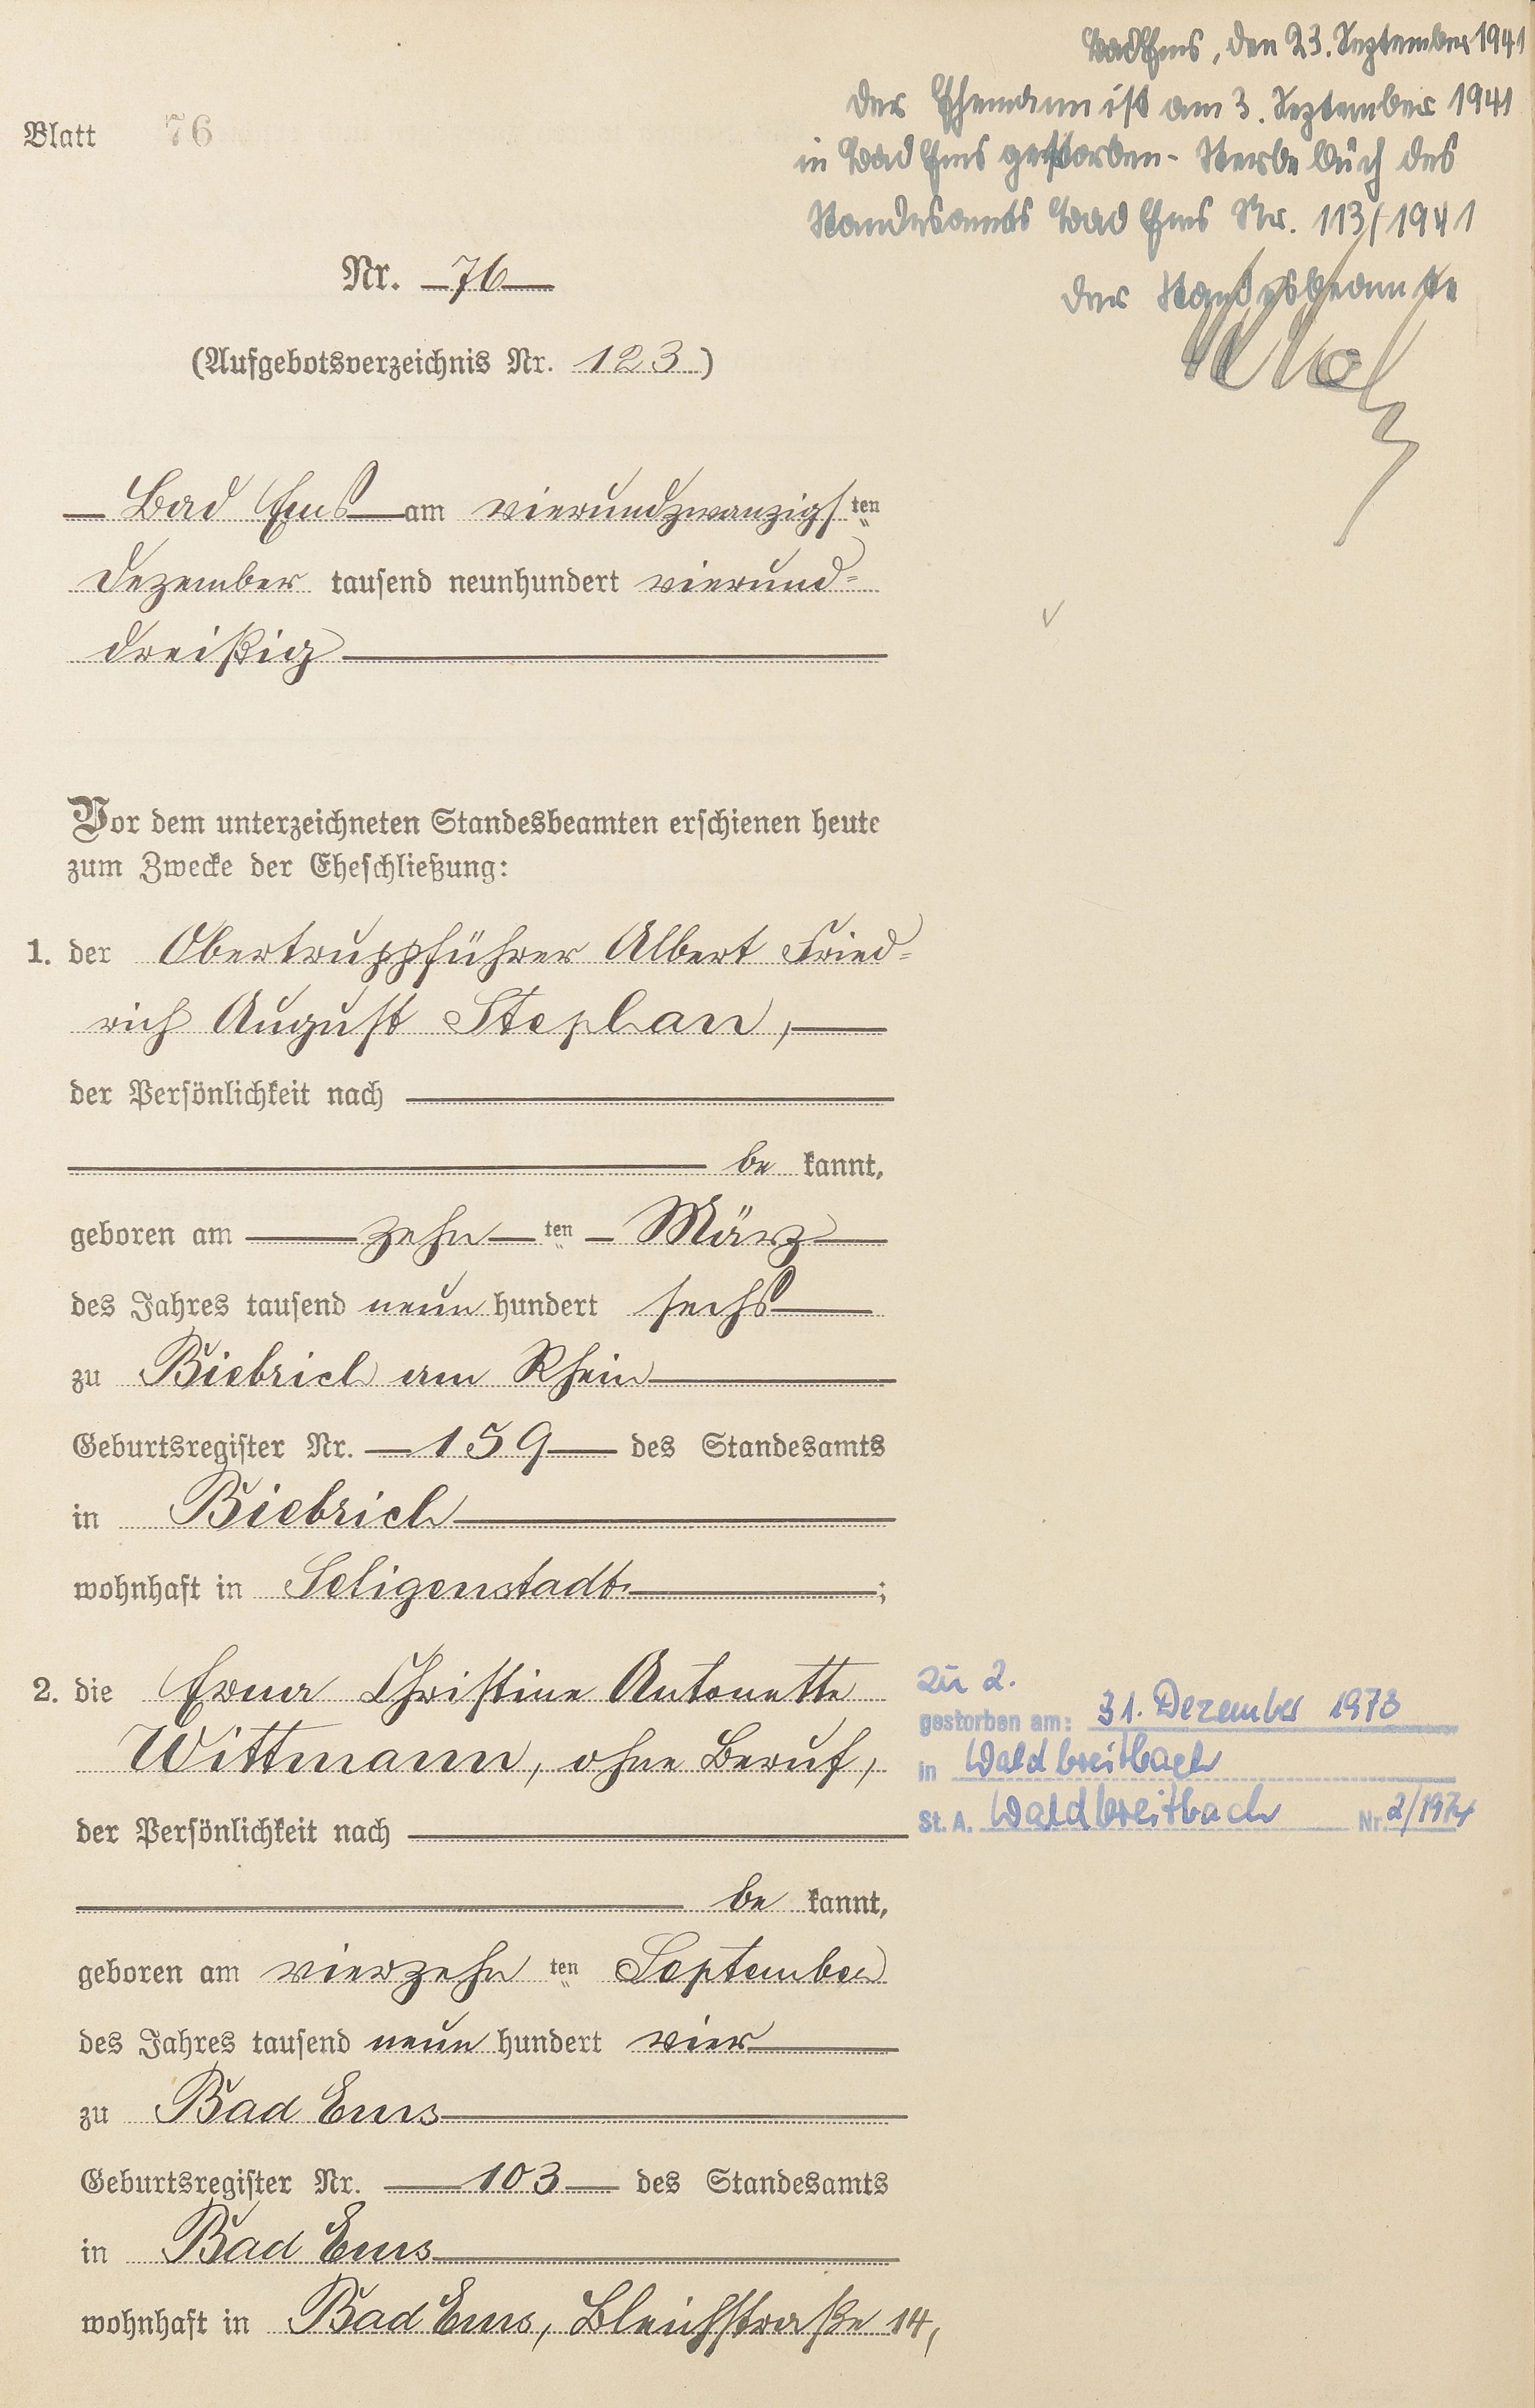 Bad Ems, den 23. September 1941
Der Ehemann ist am 3. September 1941
in Bad Ems gestorben - Sterbebuch des
Standesamts Bad Ems Nr. 113/1941
Der Standesbeamte
Blatt 76
Nr. 76
(Aufgebotsverzeichnis Nr. 123)
Bad Ems am vierundzwanzigsten
Dezember tausend neunhundert vierund-
dreißig
Vor dem unterzeichneten Standesbeamten erschienen heute
zum Zwecke der Eheschließung:
1. der Obertruppführer Albert Fried-
rich August Stephan,
der Persönlichkeit nach
be kannt,
geboren am zehn ten März
des Jahres tausend neun hundert sechs
zu Biebrich am Rhein
Geburtsregister Nr. 159 des Standesamts
in Biebrich
wohnhaft in Seligenstadt;
2. die Erna Christine Antonette
Wittmann, ohne Beruf,
der Persönlichkeit nach
be kannt,
geboren am vierzehn ten September
des Jahres tausend neun hundert vier
zu Bad Ems
Geburtsregister Nr. 103 des Standesamts
in Bad Ems
wohnhaft in Bad Ems, Bleichstraße 14,
Zu 2.
gestorben am: 31. Dezember 1973
in Waldbreitbach
St. A. Waldbreitbach Nr. 2/1974